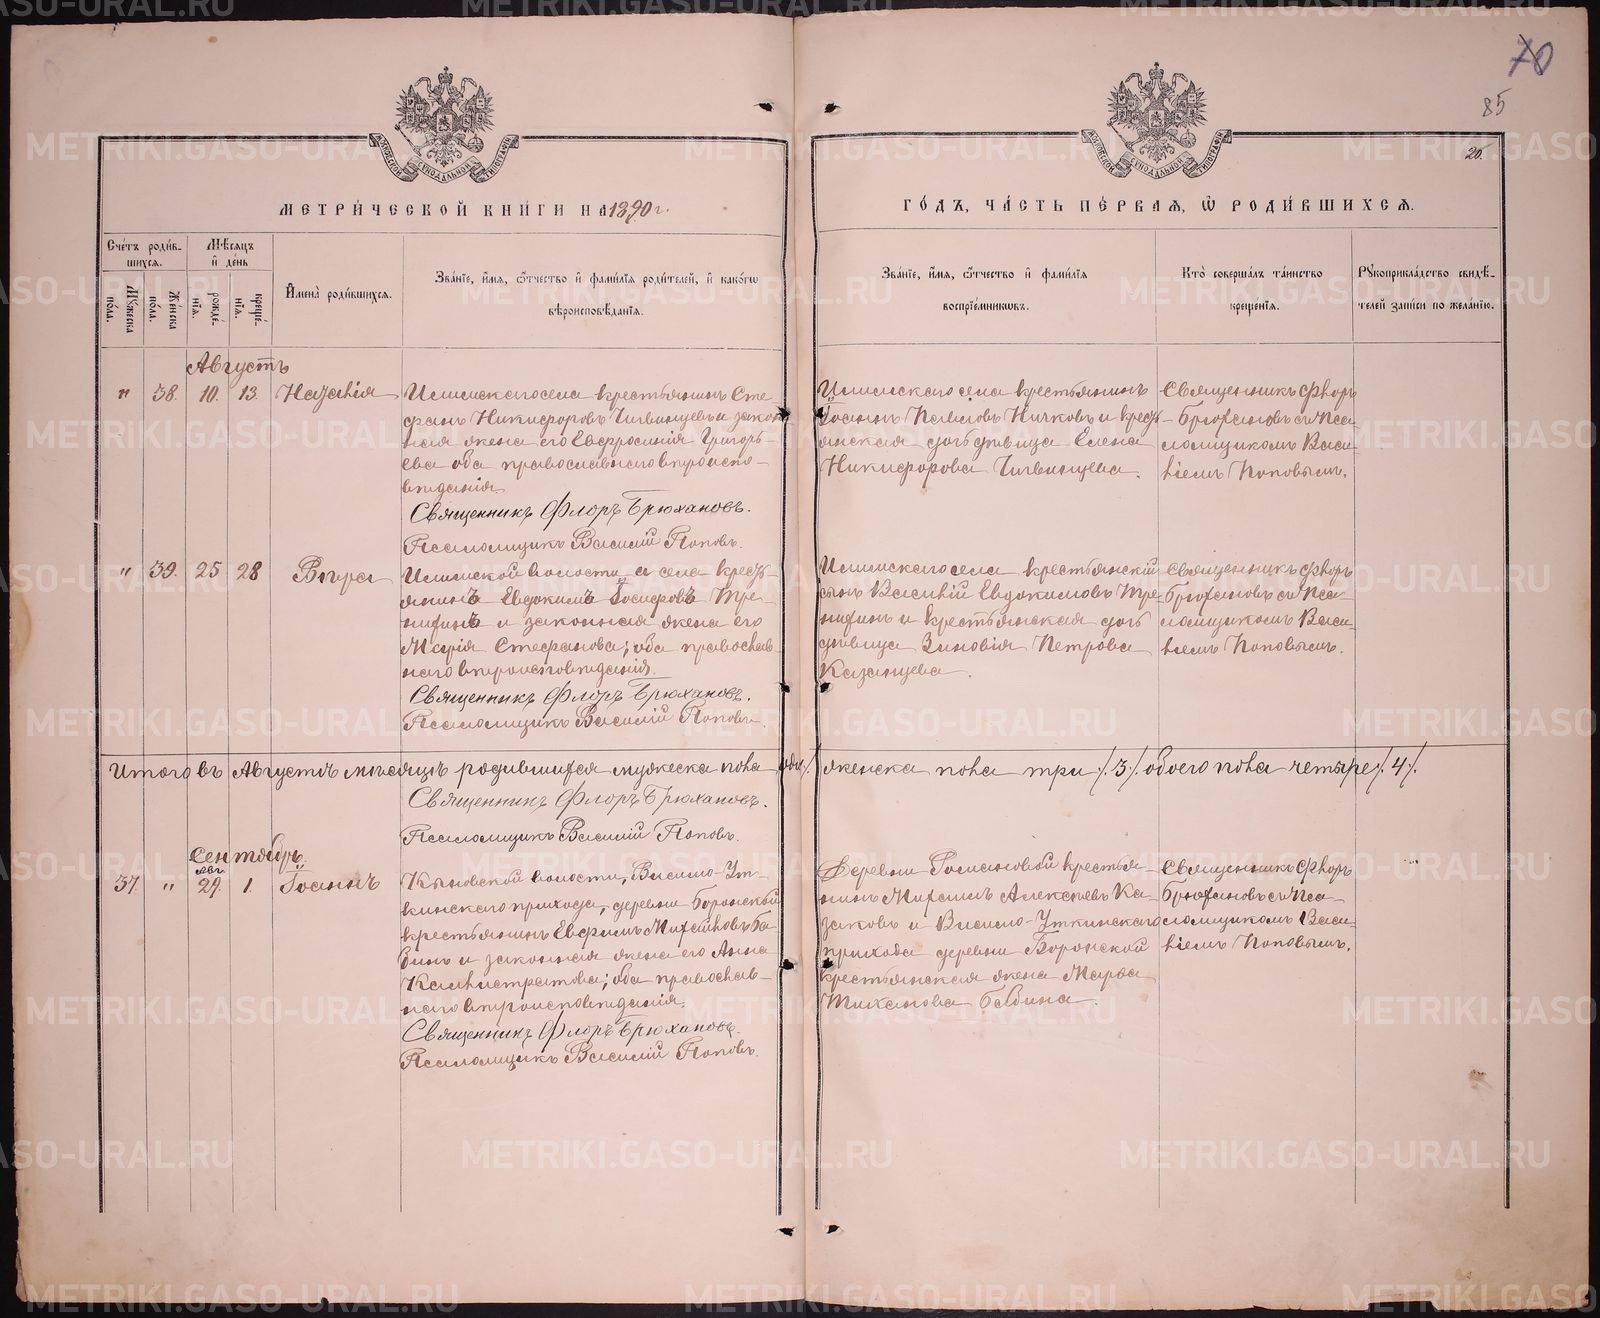 70
85
20.
МОСКОВСКОЙ СѴНОДАЛЬНОЙ ТИПОГРАФІИ
МОСКОВСКОЙ СѴНОДАЛЬНОЙ ТИПОГРАФІИ
МЕТРИ́ЧЕСКОЙ КНИ́ГИ НА 1890 г.
ГО́ДЪ, ЧА́СТЬ ПЕ́РВАЯ, Ѡ РОДИ́ВШИХСЯ.
Сче́тъ роди́в-
шихся.
Мꙋ́жеска по́ла.
Же́нска по́ла.
Мѣ́сяцъ и҆ де́нь
рожде́нїѧ.
креще́нїѧ.
И҆мена̀ роди́вшихся.
Зва́нїе, и҆́мѧ, ѻ҆́тчество и҆ фами́лїѧ роди́телей, и҆ како́гѡ
вѣроисповѣ́данїѧ.
Зва́нїе, и҆́мѧ, ѻ҆́тчество и҆ фами́лїѧ
воспрїе́мникѡвъ.
Кто̀ соверша́лъ та́инство
креще́нїѧ.
Рꙋкоприкла́дство свидѣ́-
телей за́писи по жела́нїю.
Августъ
" 38. 10. 13. Наталія
Илимскаго села крестьянинъ Сте-
фанъ Никифоровъ Чигвинцевъ и закон
ная жена его Евфросинія Григорь-
ева оба православнаго вѣроиспо-
вѣданія
Священникъ Флоръ Брюхановъ.
Псаломщикъ Василій Поповъ.
Илимскаго села крестьянинъ
Іоаннъ Павловъ Ничковъ и крест-
янская дочь дѣвица Елена
Никифорова Чигвинцева.
Священникъ Флоръ
Брюхановъ съ Пса-
ломщикомъ Васи-
ліемъ Поповымъ.
" 39. 25 28 Вѣра
Илимской волости и села крест-
янинъ Евдокимъ Іосифовъ Тре-
нихинъ и законная жена его
Марія Стефанова; оба православ-
наго вѣроисповѣданія.
Священникъ Флоръ Брюхановъ.
Псаломщикъ Василій Поповъ.
Илимскаго села крестьянскій
сынъ Василій Евдокимовъ Тре-
нихинъ и крестьянская дочь
дѣвица Зиновія Петрова
Казанцева.
Священникъ Флоръ
Брюхановъ съ Пса-
ломщикомъ Васи-
ліемъ Поповымъ.
Итого въ Августѣ мѣсяцѣ родившихся мужеска пола женска пола три /.3/. обоего пола четыре /.4/.
Священникъ Флоръ Брюхановъ.
Псаломщикъ Василій Поповъ.
Сентябрь.
Авг.
37. " 29. 1. Іоаннъ
Кыновской волости, Висимо-Ут-
кинскаго прихода, деревни Боронской
крестьянинъ Евфимъ Михайловъ Ба-
бинъ и законная жена его Анна
Каллистратова; оба православ-
наго вѣроисповѣданія.
Священникъ Флоръ Брюхановъ.
Псаломщикъ Василій Поповъ.
Деревни Романовой крестья-
нинъ Михаилъ Алексѣевъ Ка-
заковъ и Висимо-Уткинскаго
прихода деревни Боронской
крестьянская жена Марѳа
Тиханова Бабина.
Священникъ Флоръ
Брюхановъ съ Пса-
ломщикомъ Васи-
ліемъ Поповымъ.
METRIKI.GASO-URAL.RU